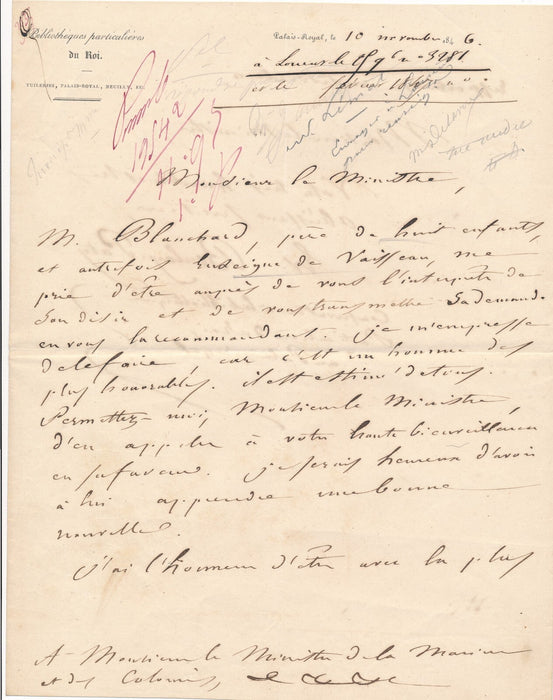 Bibliothèques particulières
du Roi.
TUILERIES, PALAIS-ROYAL, NEUILLY, EC.
Palais-Royal, le 10 novembre 1846.
19542
Monsieur le Ministre,
M. Blanchard, père de huit enfants,
et autrefois Enseigne de Vaisseau, me
prie d'être auprès de vous l'interprète de
son désir et de vous transmettre sa demande
en vous la recommandant. je m'empresse
de le faire, car c'est un homme des
plus honorables. il est estimé de tous.
Permettez-moi, Monsieur le Ministre,
d'en appeler à votre haute bienveillance
en sa faveur. je serais heureux d'avoir
à lui apprendre une bonne
nouvelle.
j'ai l'honneur d'être avec la plus
A Monsieur le Ministre de la Marine
et des Colonies,